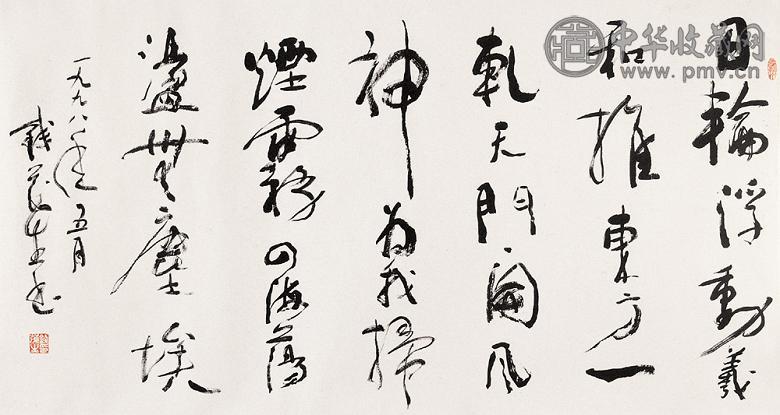 日輪浮動羲
和推東方一
軋天門開風
神為我掃
煙霾四海蕩
盪無塵埃
一九九八年五月
生书
中华收藏网
www.pmv.cn